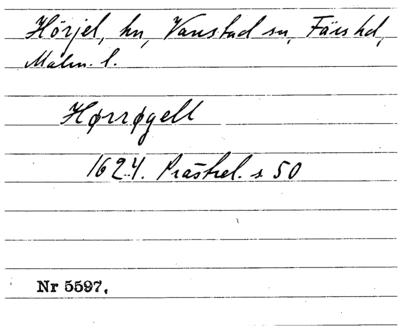 Hörjel, hn, Vanstad sn, Färs hd,
Malm. l.
Hørrøgell
1624. Prästrel. s 50
Nr 5597.